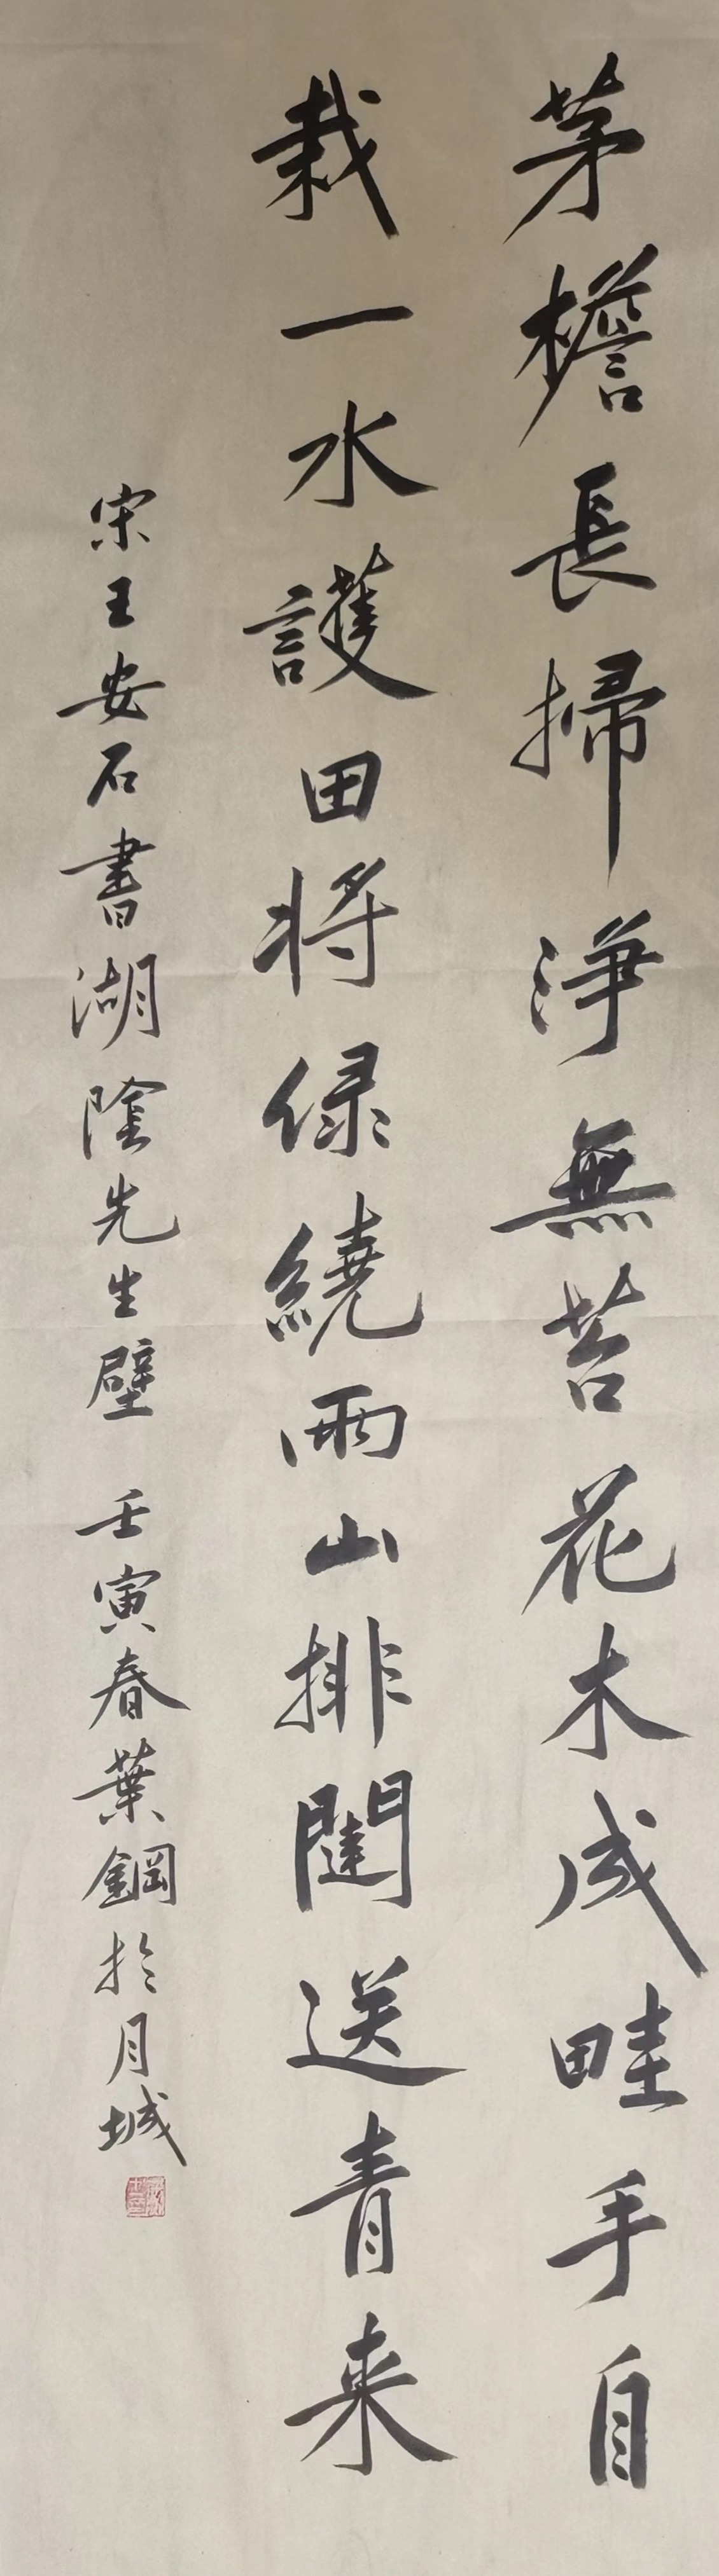 茅檐長掃淨無苔花木成畦手自
栽一水護田將绿繞兩山排闥送青来
宋王安石書湖陰先生壁 壬寅春葉鋼於月城